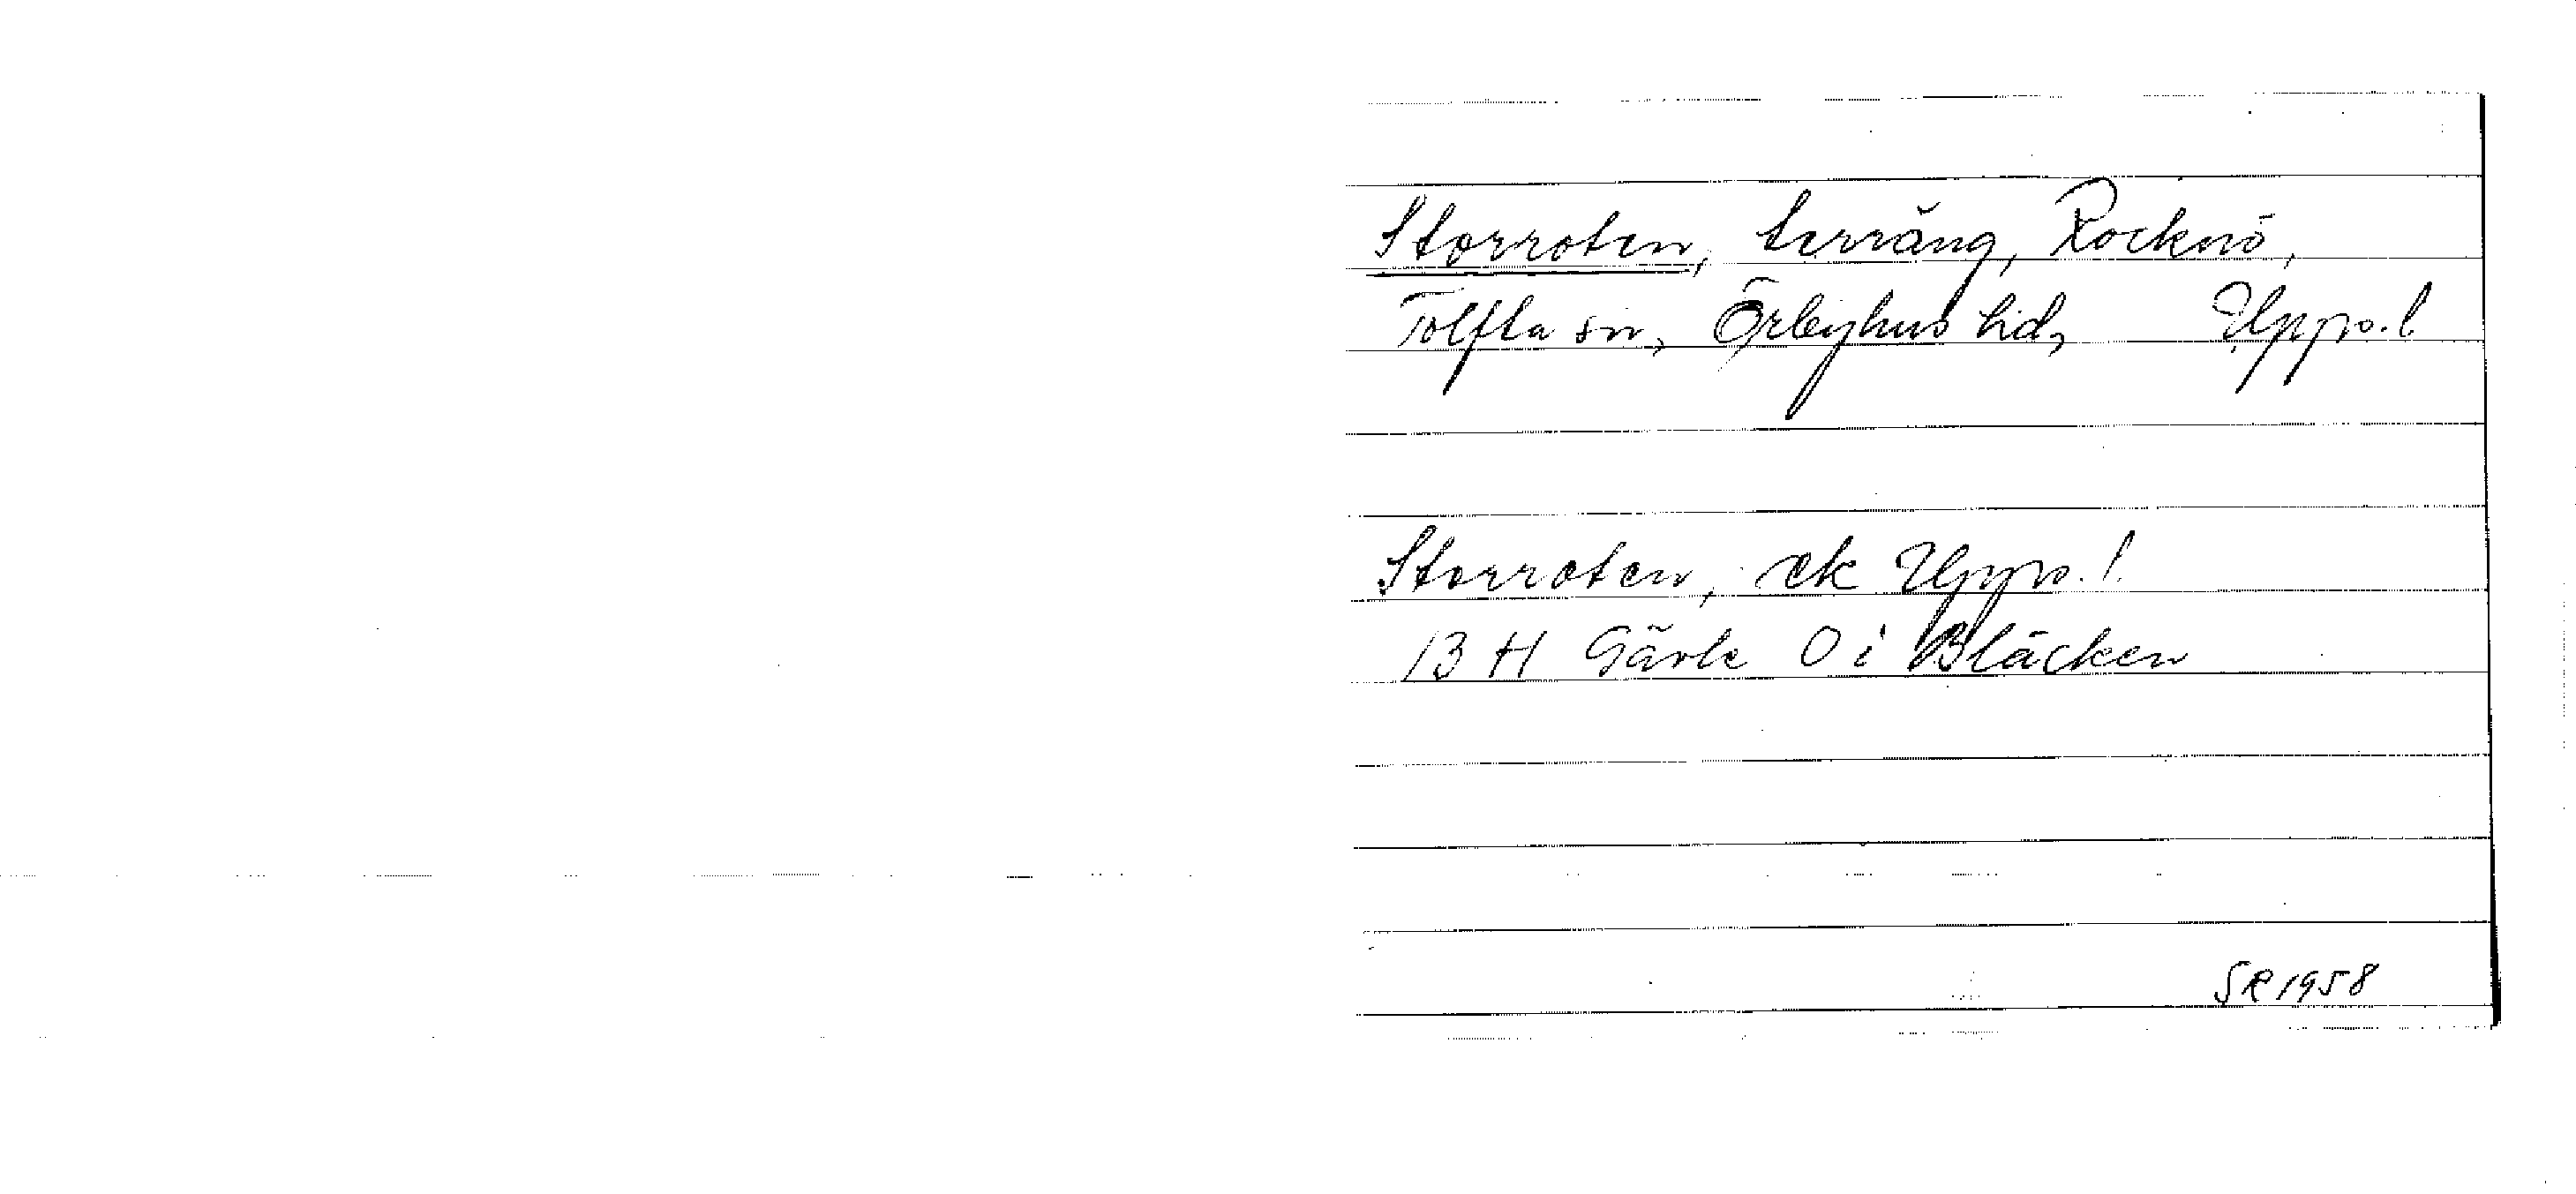 Storroten, terräng, Rocknö,
Tolfta sn, Örbyhus hd, Upps.l
Storroten, ek Upps.l.
13 H Gävle O i Bläcken
SR 1958